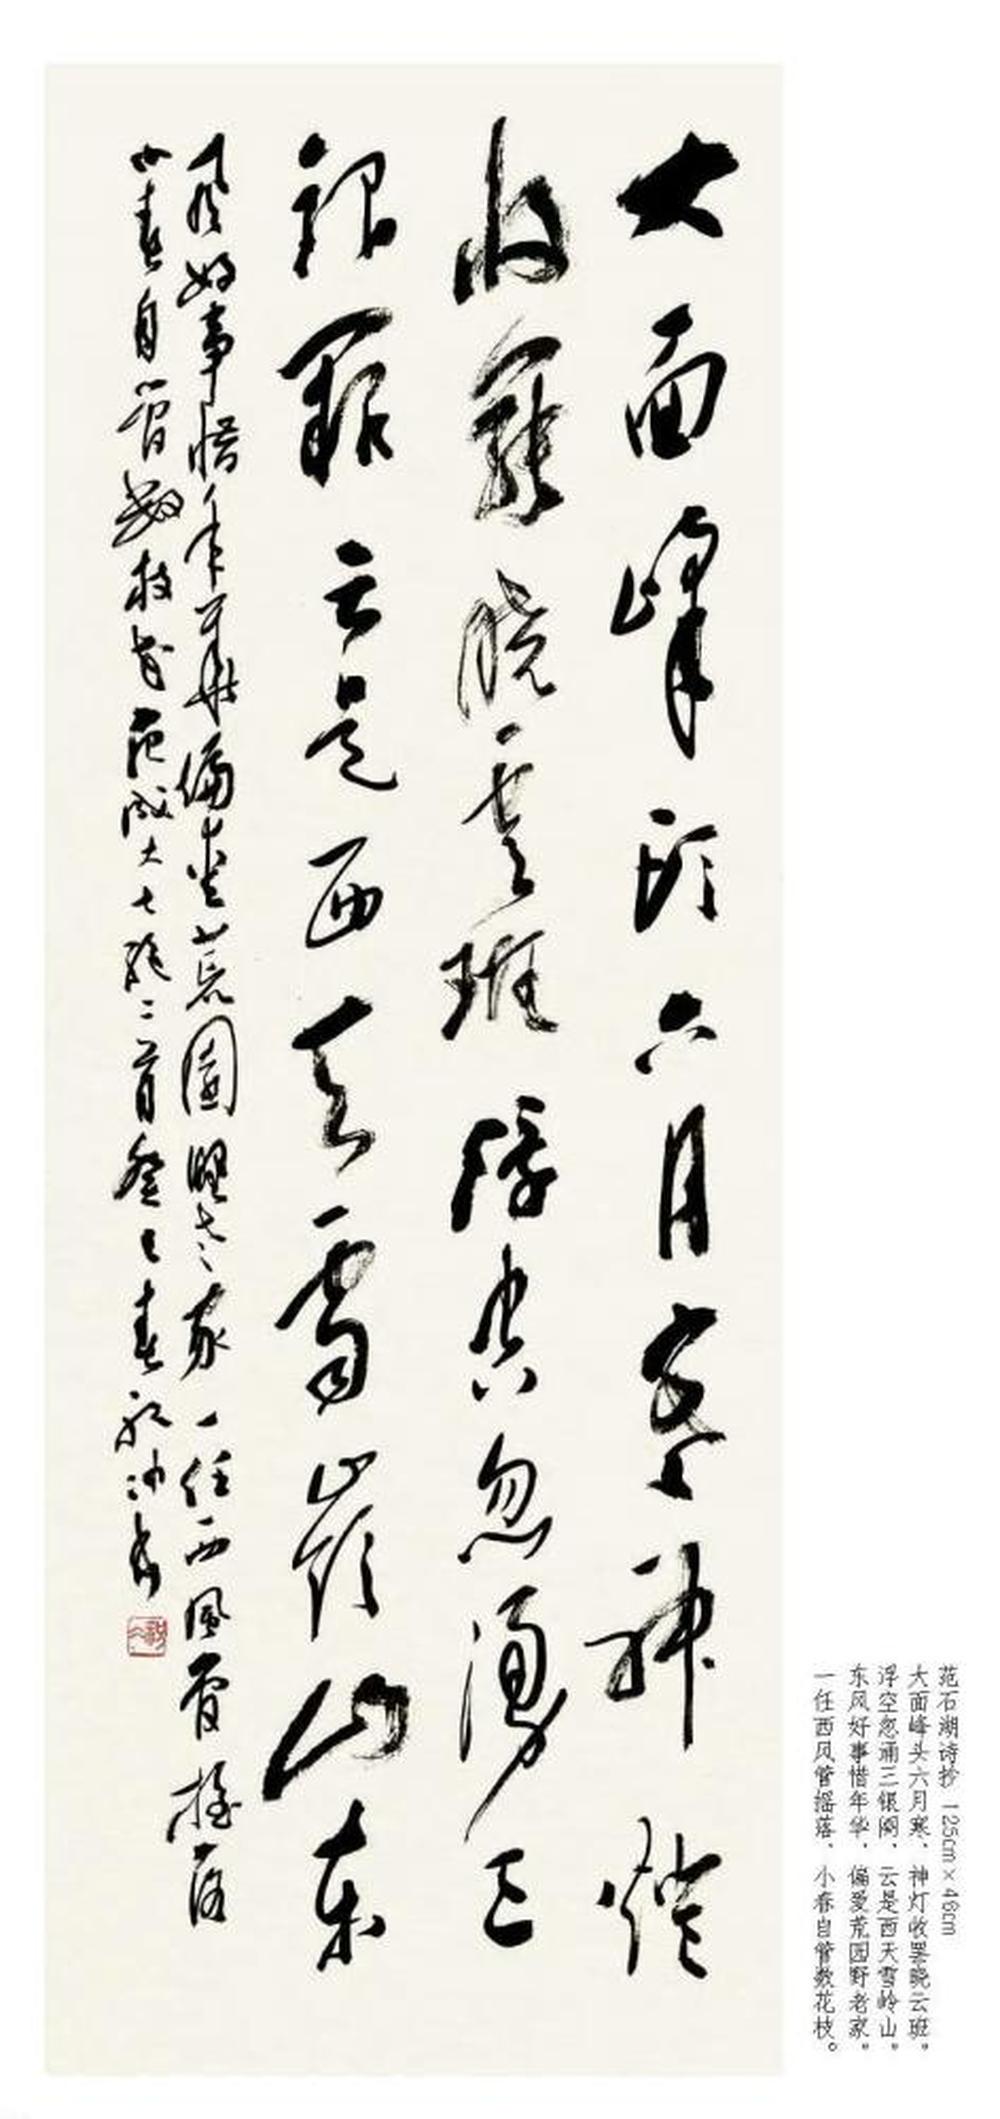 大面峰頭六月寒神燈
收罷曉雲班浮空忽湧三
銀闕云是西天雪嶺山東
風好事惜年華偏愛荒園野老家一任西風管搖落
小春自管數枝花范成大七絕二首癸巳春
范石湖诗抄 125cm×46cm
大面峰头六月寒、神灯收罢晓云班。
浮空忽涌三银阙、云是西天雪岭山。
东风好事惜年华、偏爱荒园野老家。
一任西风管摇落、小春自管数花枝。